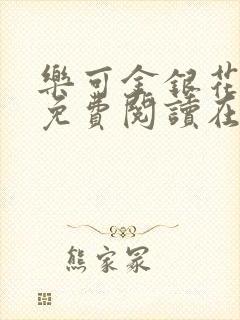 樂可金銀花
免費閱讀在
熊家冢